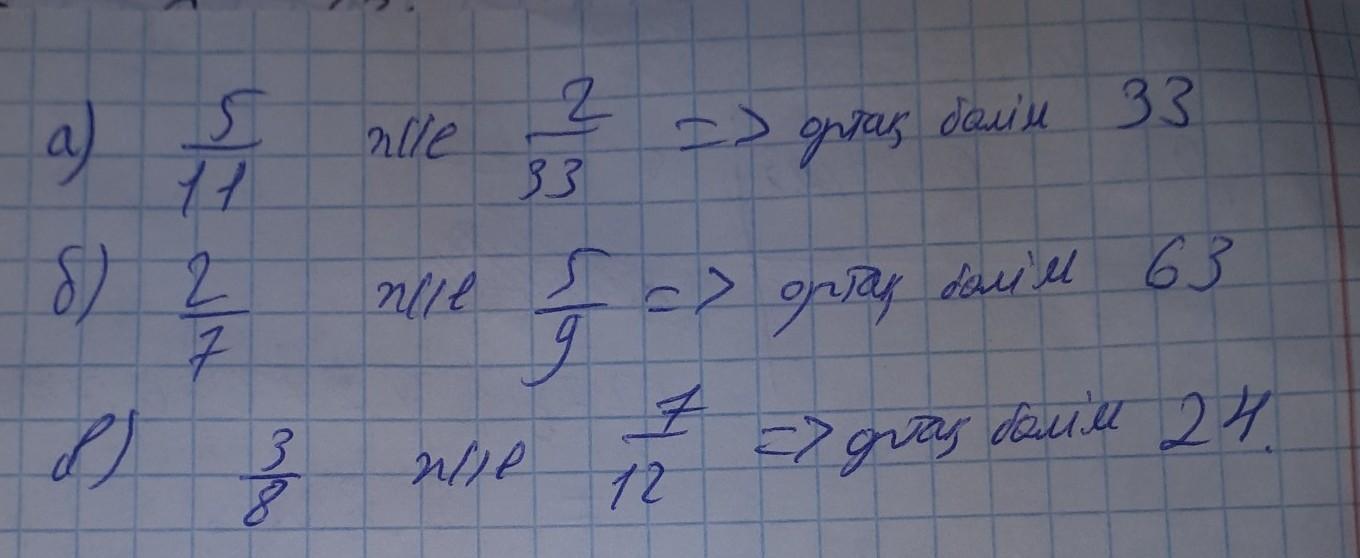 а) 5/11 және 2/33 => ортақ бөлім 33
б) 2/7 және 5/9 => ортақ бөлім 63
в) 3/8 және 7/12 => ортақ бөлім 24.